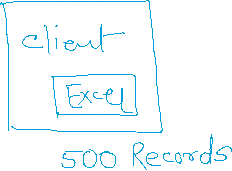 client
Excel
500 Records